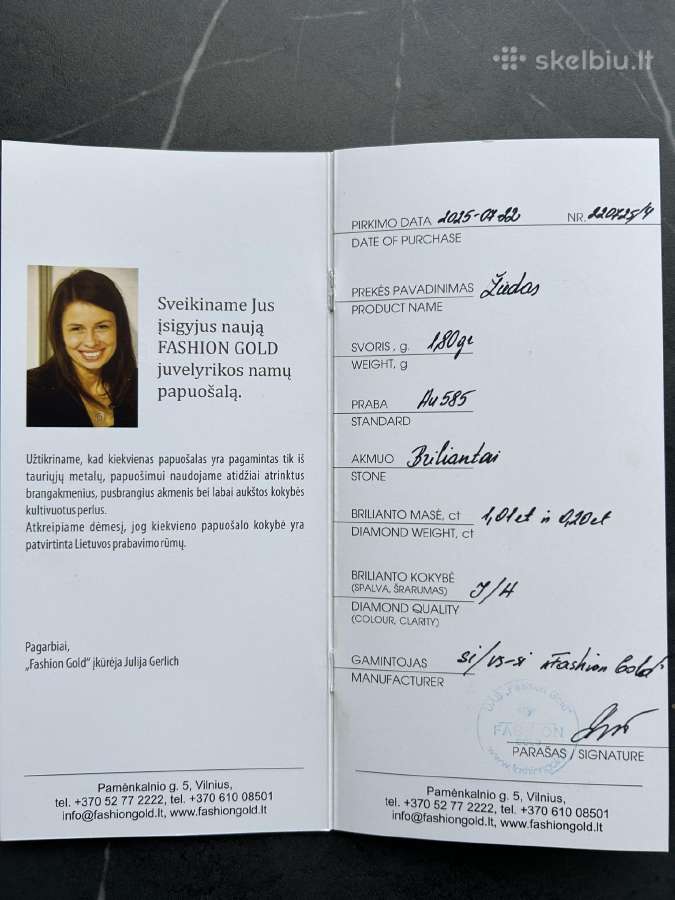 skelbiu.lt
Sveikiname Jus
įsigyjus naują
FASHION GOLD
juvelyrikos namų
papuošalą.
Užtikriname, kad kiekvienas papuošalas yra pagamintas tik iš
tauriųjų metalų, papuošimui naudojame atidžiai atrinktus
brangakmenius, pusbrangius akmenis bei labai aukštos kokybės
kultivuotus perlus.
Atkreipiame dėmesį, jog kiekvieno papuošalo kokybė yra
patvirtinta Lietuvos prabavimo rūmų.
Pagarbiai,
„Fashion Gold" įkūrėja Julija Gerlich
Pamėnkalnio g. 5, Vilnius,
tel. +370 52 77 2222, tel. +370 610 08501
info@fashiongold.lt, www.fashiongold.lt
PIRKIMO DATA 2025-07-22 NR. 220725/4
DATE OF PURCHASE
PREKĖS PAVADINIMAS Žiedas
PRODUCT NAME
SVORIS, g. 1,80gr
WEIGHT, g
PRABA Au 585
STANDARD
AKMUO Briliantai
STONE
BRILIANTO MASĖ, ct 1,01ct ir 0,20ct
DIAMOND WEIGHT, ct
BRILIANTO KOKYBĖ
(SPALVA, ŠRARUMAS) J/H
DIAMOND QUALITY
(COLOUR, CLARITY)
GAMINTOJAS si/vs-si „Fashion Gold"
MANUFACTURER
UAB „Fashion Gold"
FASHION
PARAŠAS / SIGNATURE
Pamėnkalnio g. 5, Vilnius,
tel. +370 52 77 2222, tel. +370 610 08501
info@fashiongold.lt, www.fashiongold.lt